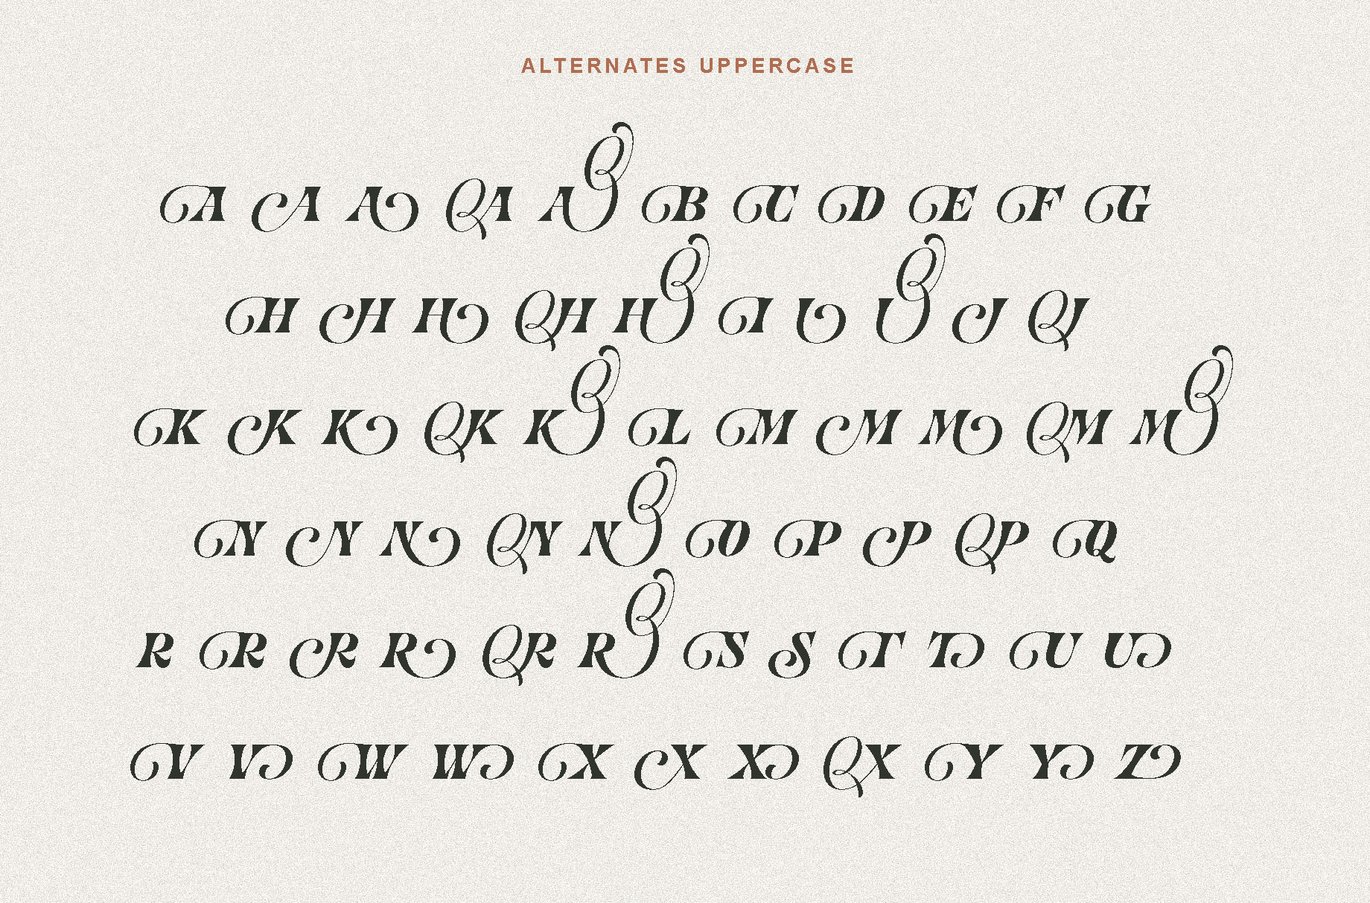 ALTERNATES UPPERCASE
A A A A A B C D E F G
H H H H H I I I J J
K K K K K L M M M M M
N N N N N O P P P Q
R R R R R R S S T T U U
V V W W X X X X Y Y Z